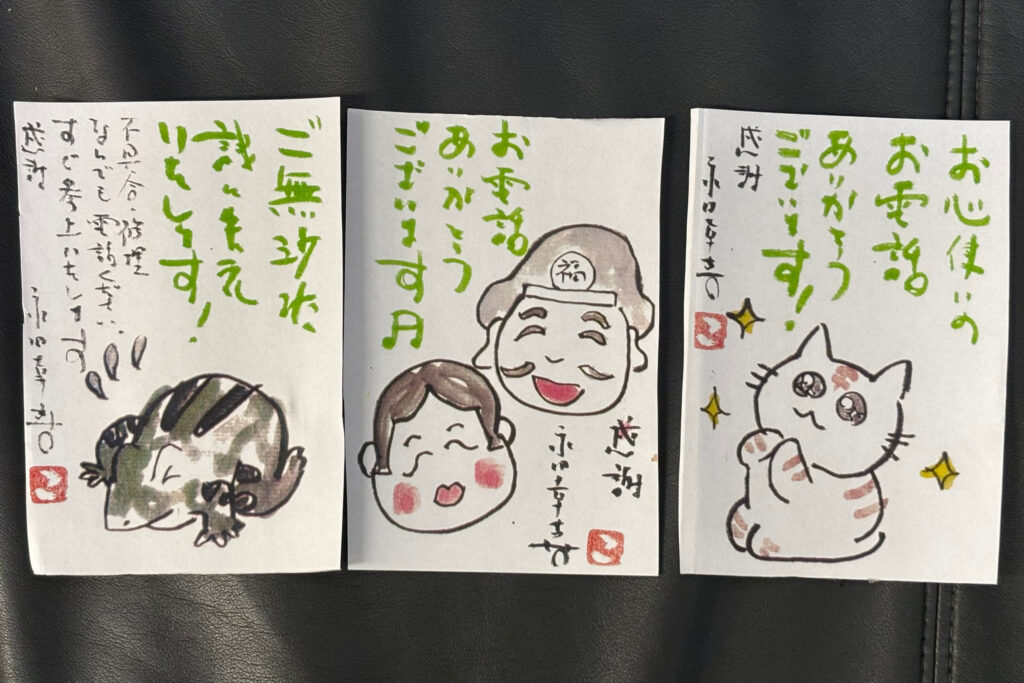 ご無沙汰
いたします!
不具合・修理
なんでも電話ください、
すぐ参上いたします
感謝
お電話
ありがとう
ございます
福
感謝
お心使いの
お電話
ありがとう
ございます!
感謝